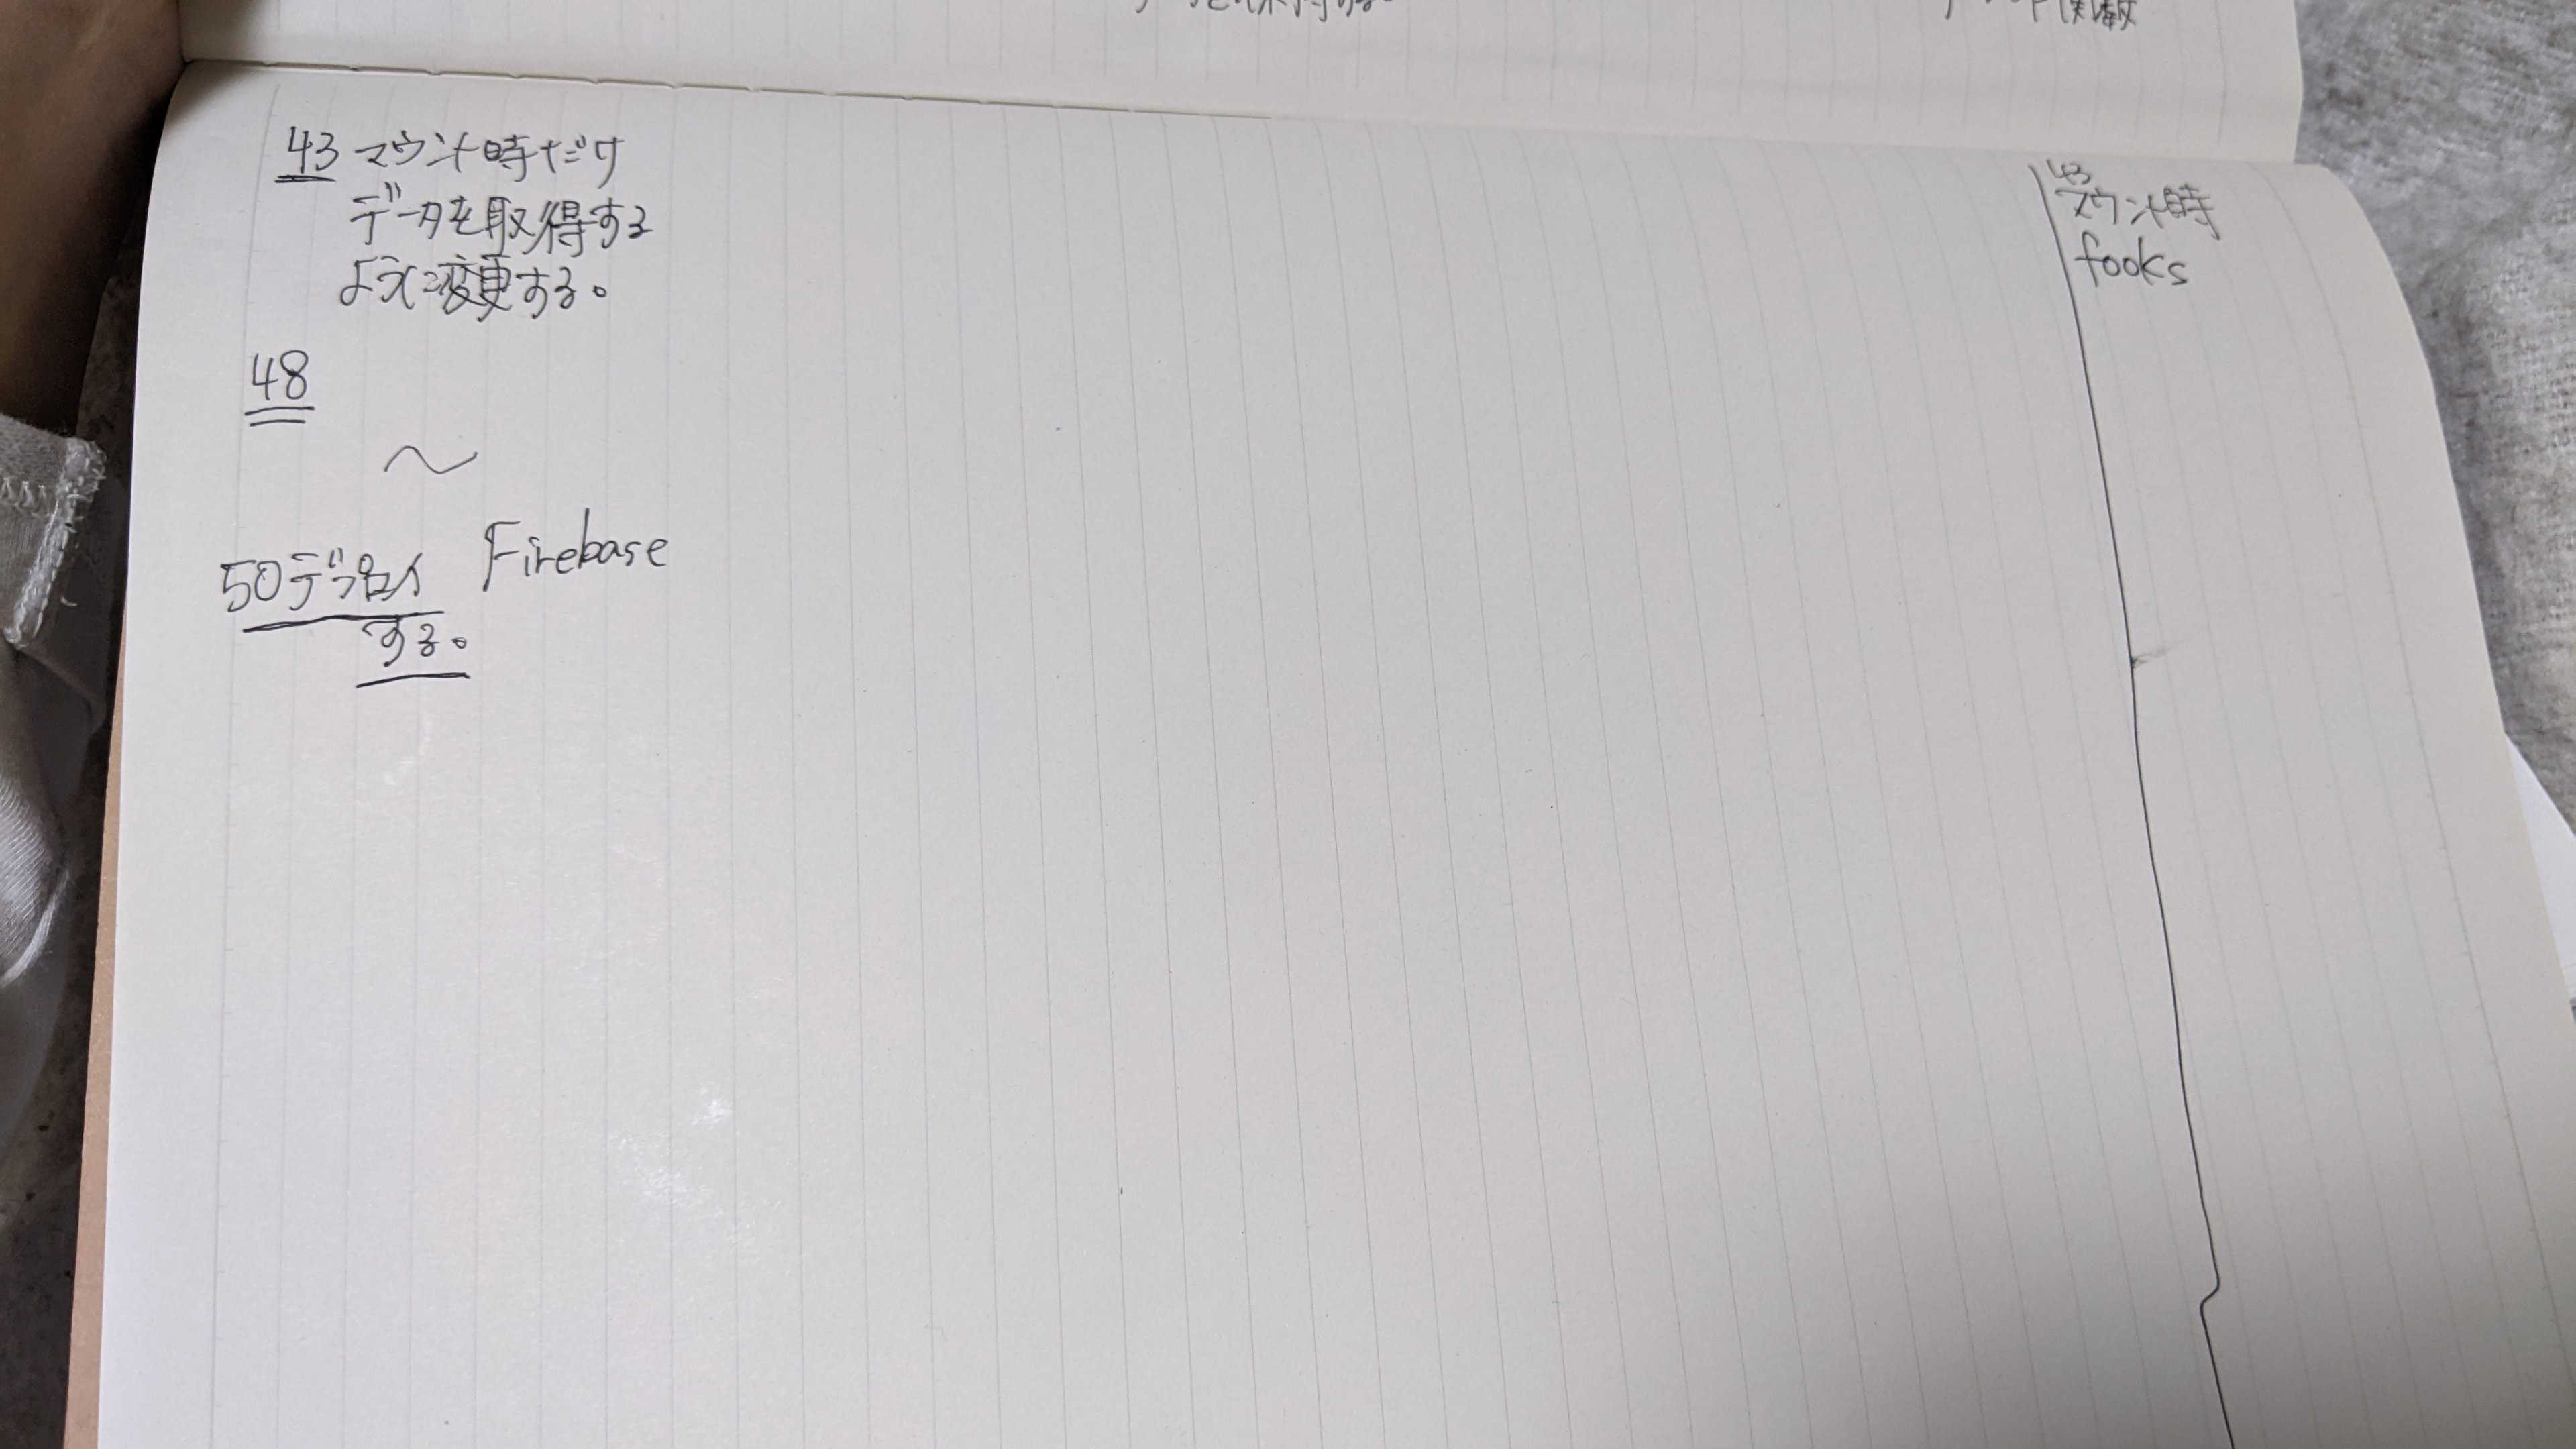 関数
43 マウント時だけ
データを取得する
ように変更する。
48
〜
50デプロイ Firebase
する。
43
マウント時
fooks